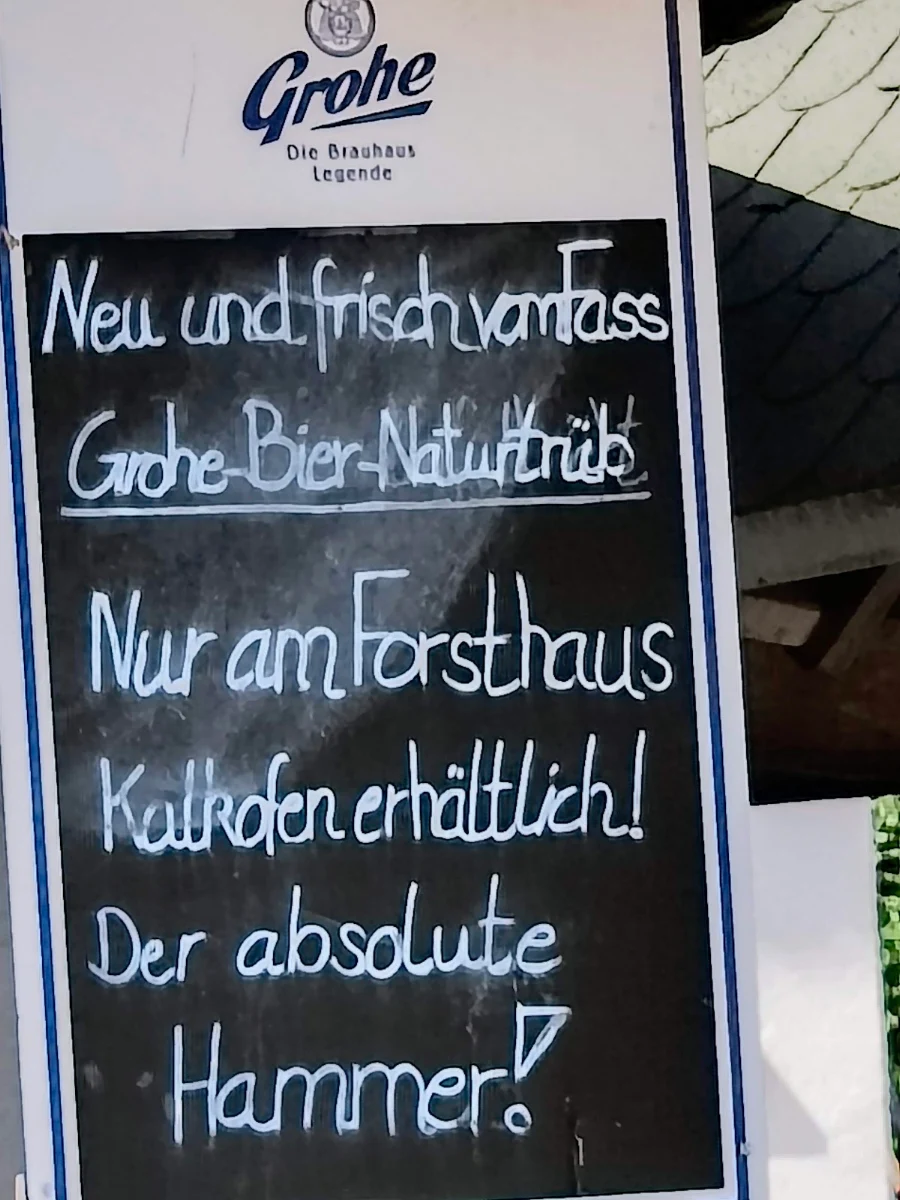 Grohe
Die Brauhaus
Legende
Neu und frisch vom Fass
Grohe-Bier-Naturtrüb
Nur am Forsthaus
Kalkofen erhältlich!
Der absolute
Hammer!